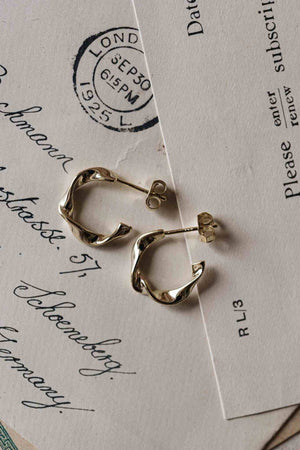 LOND
SEP30
615PM
1925
L
chmann
strasse. 57,
Schoeneberg.
Germany.
Date
Please enter renew subscripti
R L/3